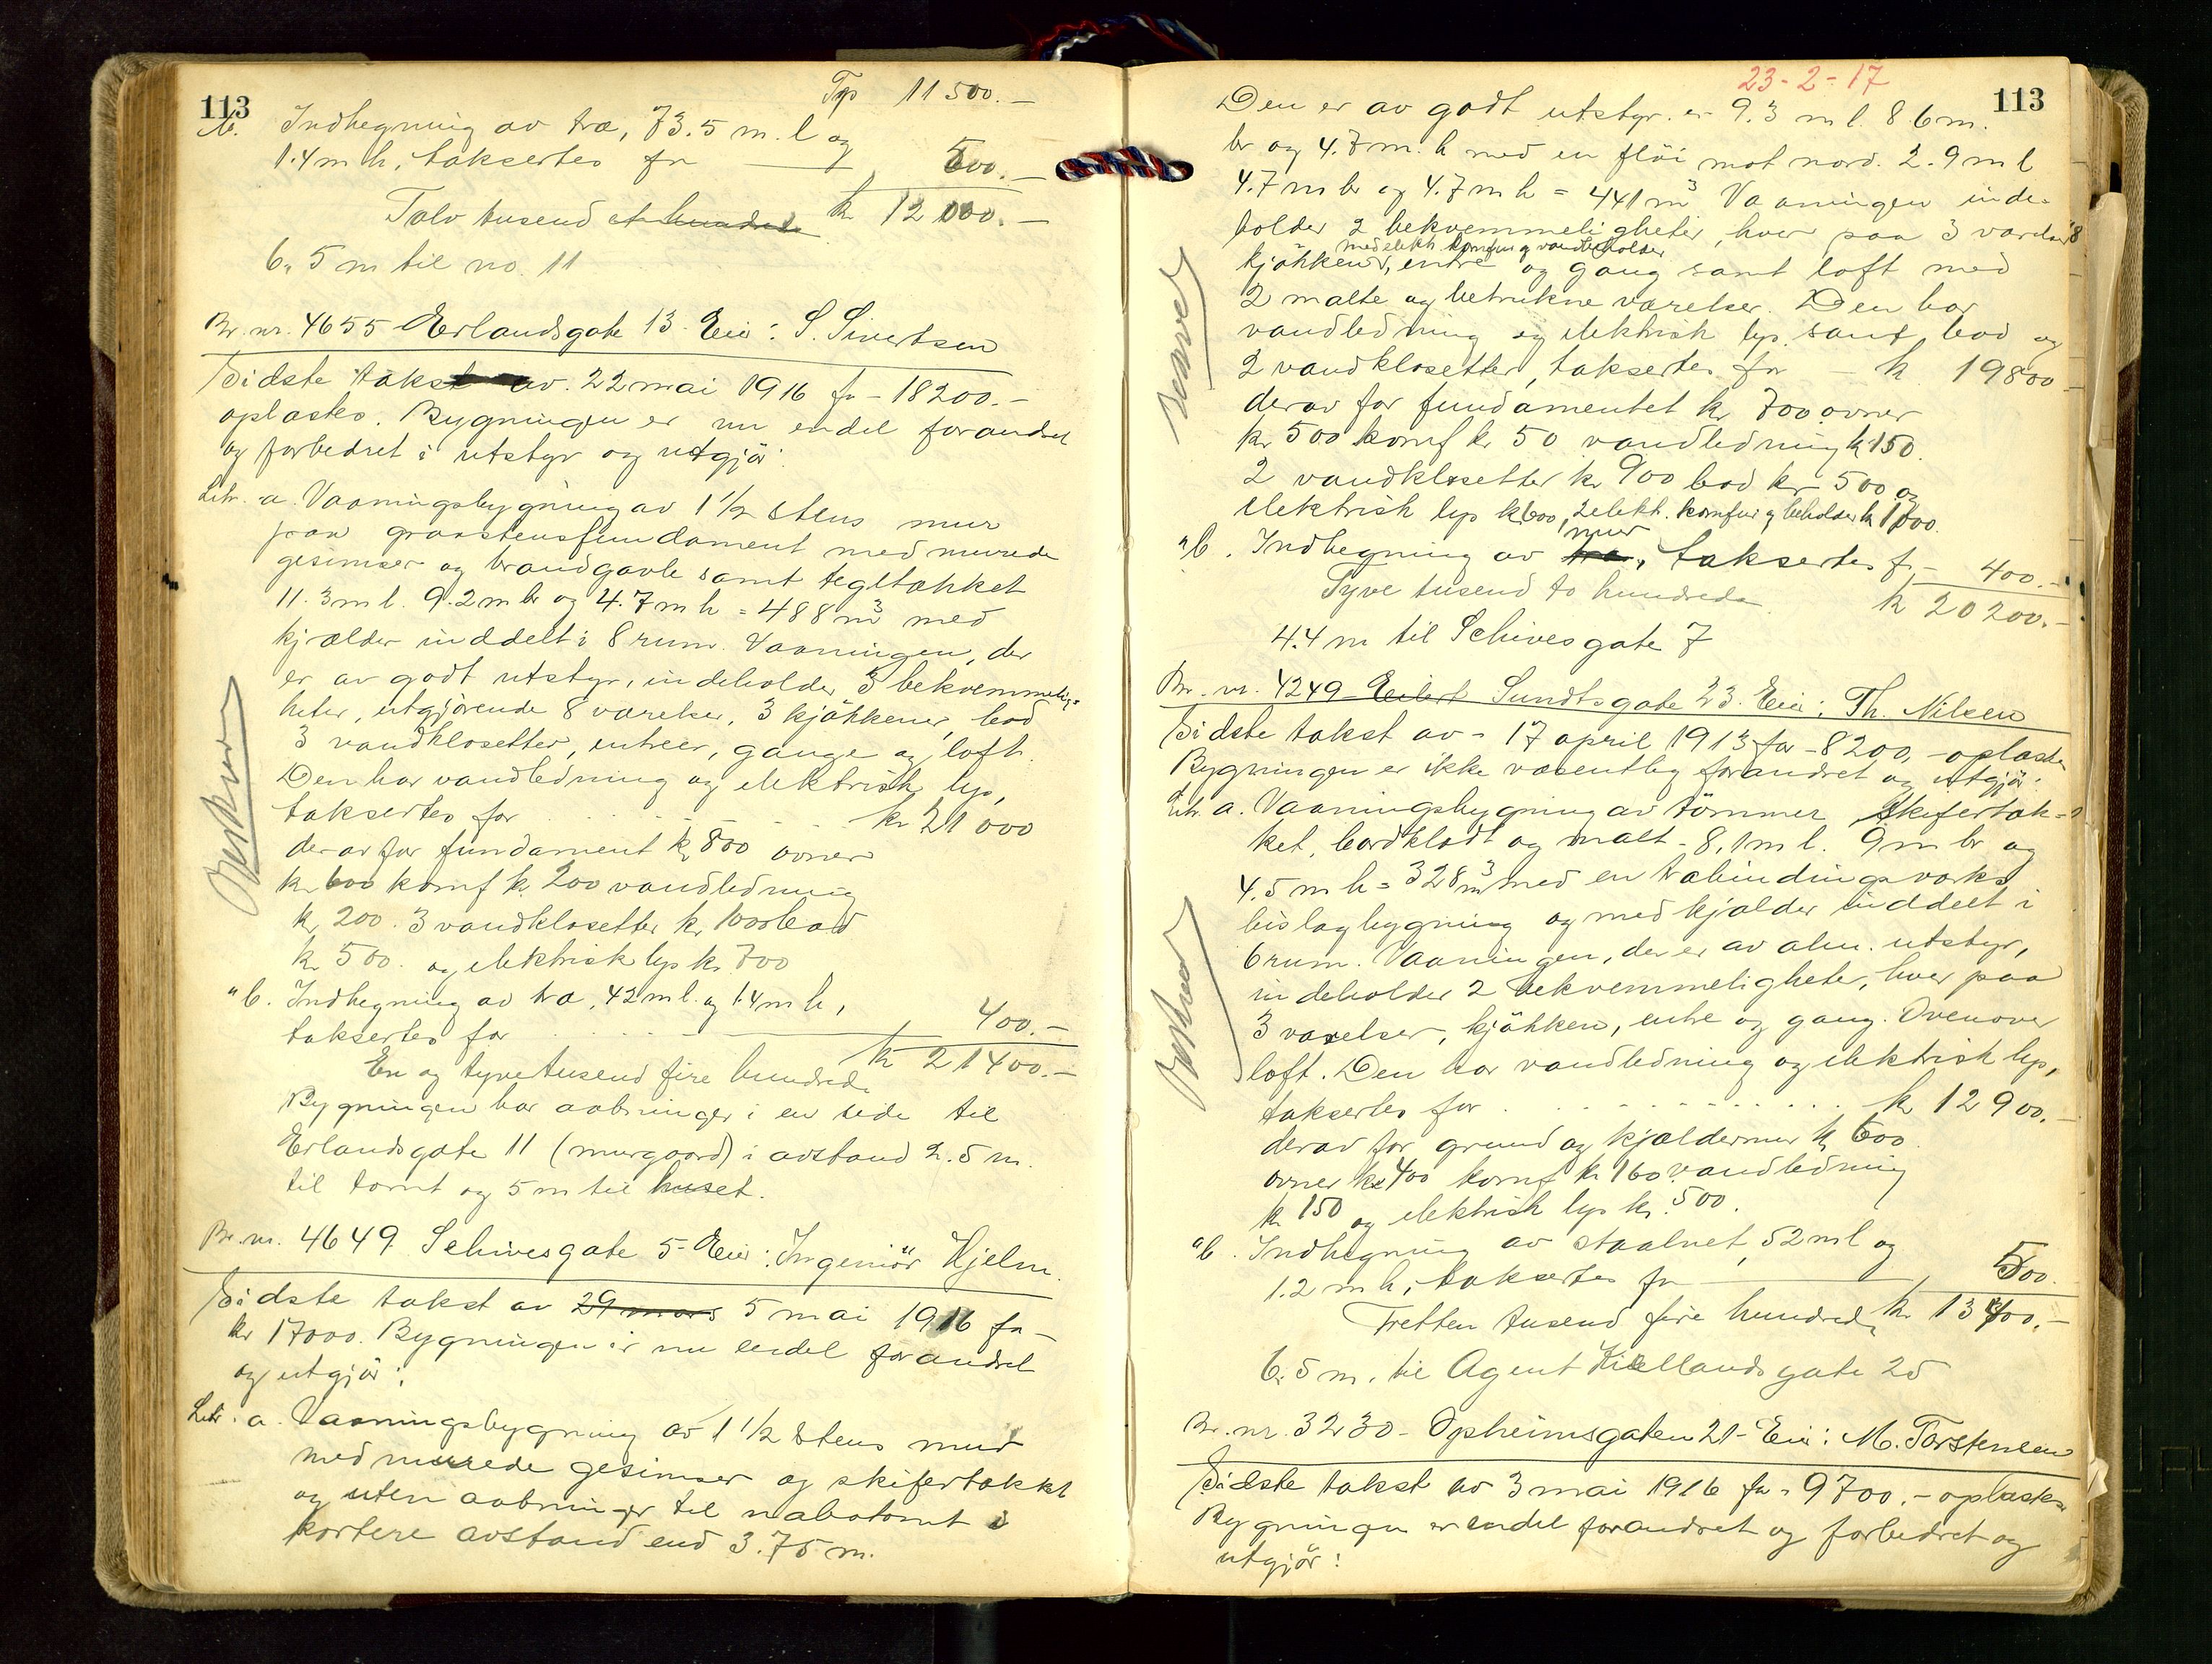 113
Tp 11500.-
b. Indhegning av træ, 73.5 m. l og
1.4 m h, taksertes for 500.-
Tolv tusend et hundrede kr 12000.-
6.5 m til no. 11
Br. nr. 4655 Erlandsgate 13. Eier: S. Sivertsen
Sidste takst av. 22 mai 1916 for - 18200.-
oplæstes. Bygningen er nu endel forandret
og forbedret i utstyr og utgjör:
Litr. a. Vaaningsbygning av 1 1/2 stens mur
paa graastensfundament med murede
gesimser og brandgavle samt tegltækket
11.3 m l. 9.2 m br og 4.7 m h = 488 m³ med
kjælder inddelt i 8 rum. Vaaningen, der
er av godt utstyr, indeholder 3 bekvemmelig-
heter, utgjørende 8 værelser, 3 kjøkkener, bad
3 vandklosetter, entreer, gange og loft.
Den har vandledning og elektrisk lys,
taksertes for kr 21000
derav for fundament kr 800 ovner
kr 600 komf kr. 200 vandledning
kr 200. 3 vandklosetter kr. 1000 bad
kr 500. og elektrisk lys kr. 700
Beskrevet
" b. Indhegning av træ, 42 m l. og 1.4 m h,
taksertes for 400.-
kr 21400.-
En og tyvetusend fire hundrede
Bygningen har aabninger i en side til
Erlandsgate 11 (murgaard) i avstand 2.5 m.
til tomt og 5 m til huset.
Br. nr. 4649 Schivesgate 5 - Eier: Ingeniör Hjelm.
Sidste takst av 29 mars 5 mai 1916 for -
kr 17000. Bygningen er nu endel forandret
og utgjör:
Litr. a. Vaaningsbygning av 1 1/2 stens mur
med murede gesimser og skifertækket
og uten aabninger til nabotomt i
kortere avstand end 3.75 m.
23-2-17
113
Den er av godt utstyr. er 9.3 m l. 8.6 m.
br og 4.7 m. h med en flöi mot nord. 2.9 m l
4.7 m br og 4.7 m h = 441 m³ Vaaningen inde-
holder 2 bekvemmeligheter, hver paa 3 værelser
med elekt. komfur og vandbeholder
kjökkener, entre og gang samt loft med
2 malte og betrukne værelser. Den har
vandledning og elektrisk lys. samt bad og
2 vandklosetter, taksertes for - kr 19800-
derav for fundamentet kr 700 ovner
kr 500 komf kr 50 vandledning kr 150.
2 vandklosetter kr 900 bad kr 500 og
elektrisk lys kr 600, 2 elekt. komfur og beholder kr 1000.
mur
" b. Indhegning av træ, taksertes for - 400.-
Tyve tusend to hundrede kr 20200.-
4.4 m til Schivesgate 7
Br. nr. 4249 Eilert Sundtsgate 23. Eier: Th. Nilsen
Sidste takst av - 17 april 1913 for - 8200,- oplæstes
Bygningen er ikke væsentlig forandret og utgjör:
Litr. a. Vaaningsbygning av tömmer skifertæk-
ket, bordklædt og malt - 8,1 m l. 9 m br og
4.5 m h = 328 m³ med en træbindingsverks
bislagbygning og med kjælder inddelt i
6 rum. Vaaningen, der er av alm. utstyr,
indeholder 2 bekvemmeligheter, hver paa
3 værelser, kjökken, entre og gang. Ovenover
loft. Den har vandledning og elektrisk lys,
taksertes for kr 12900.-
derav for grund og kjældermur kr 600
ovner kr 400 komf kr 160 vandledning
kr 150 og elektrisk lys kr. 500.
Beskrevet
" b. Indhegning av staalnet, 52 m l og
1.2 m h, taksertes for 500.
Tretten tusend fire hundrede kr 13400.-
6.5 m. til Agent Kiellands gate 25
Br. nr. 3230 - Opheimsgaten 21 - Eier: M. Torstensen
Sidste takst av 3 mai 1916 for - 9700.- oplæstes
Bygningen er endel forandret og forbedret og
utgjör: